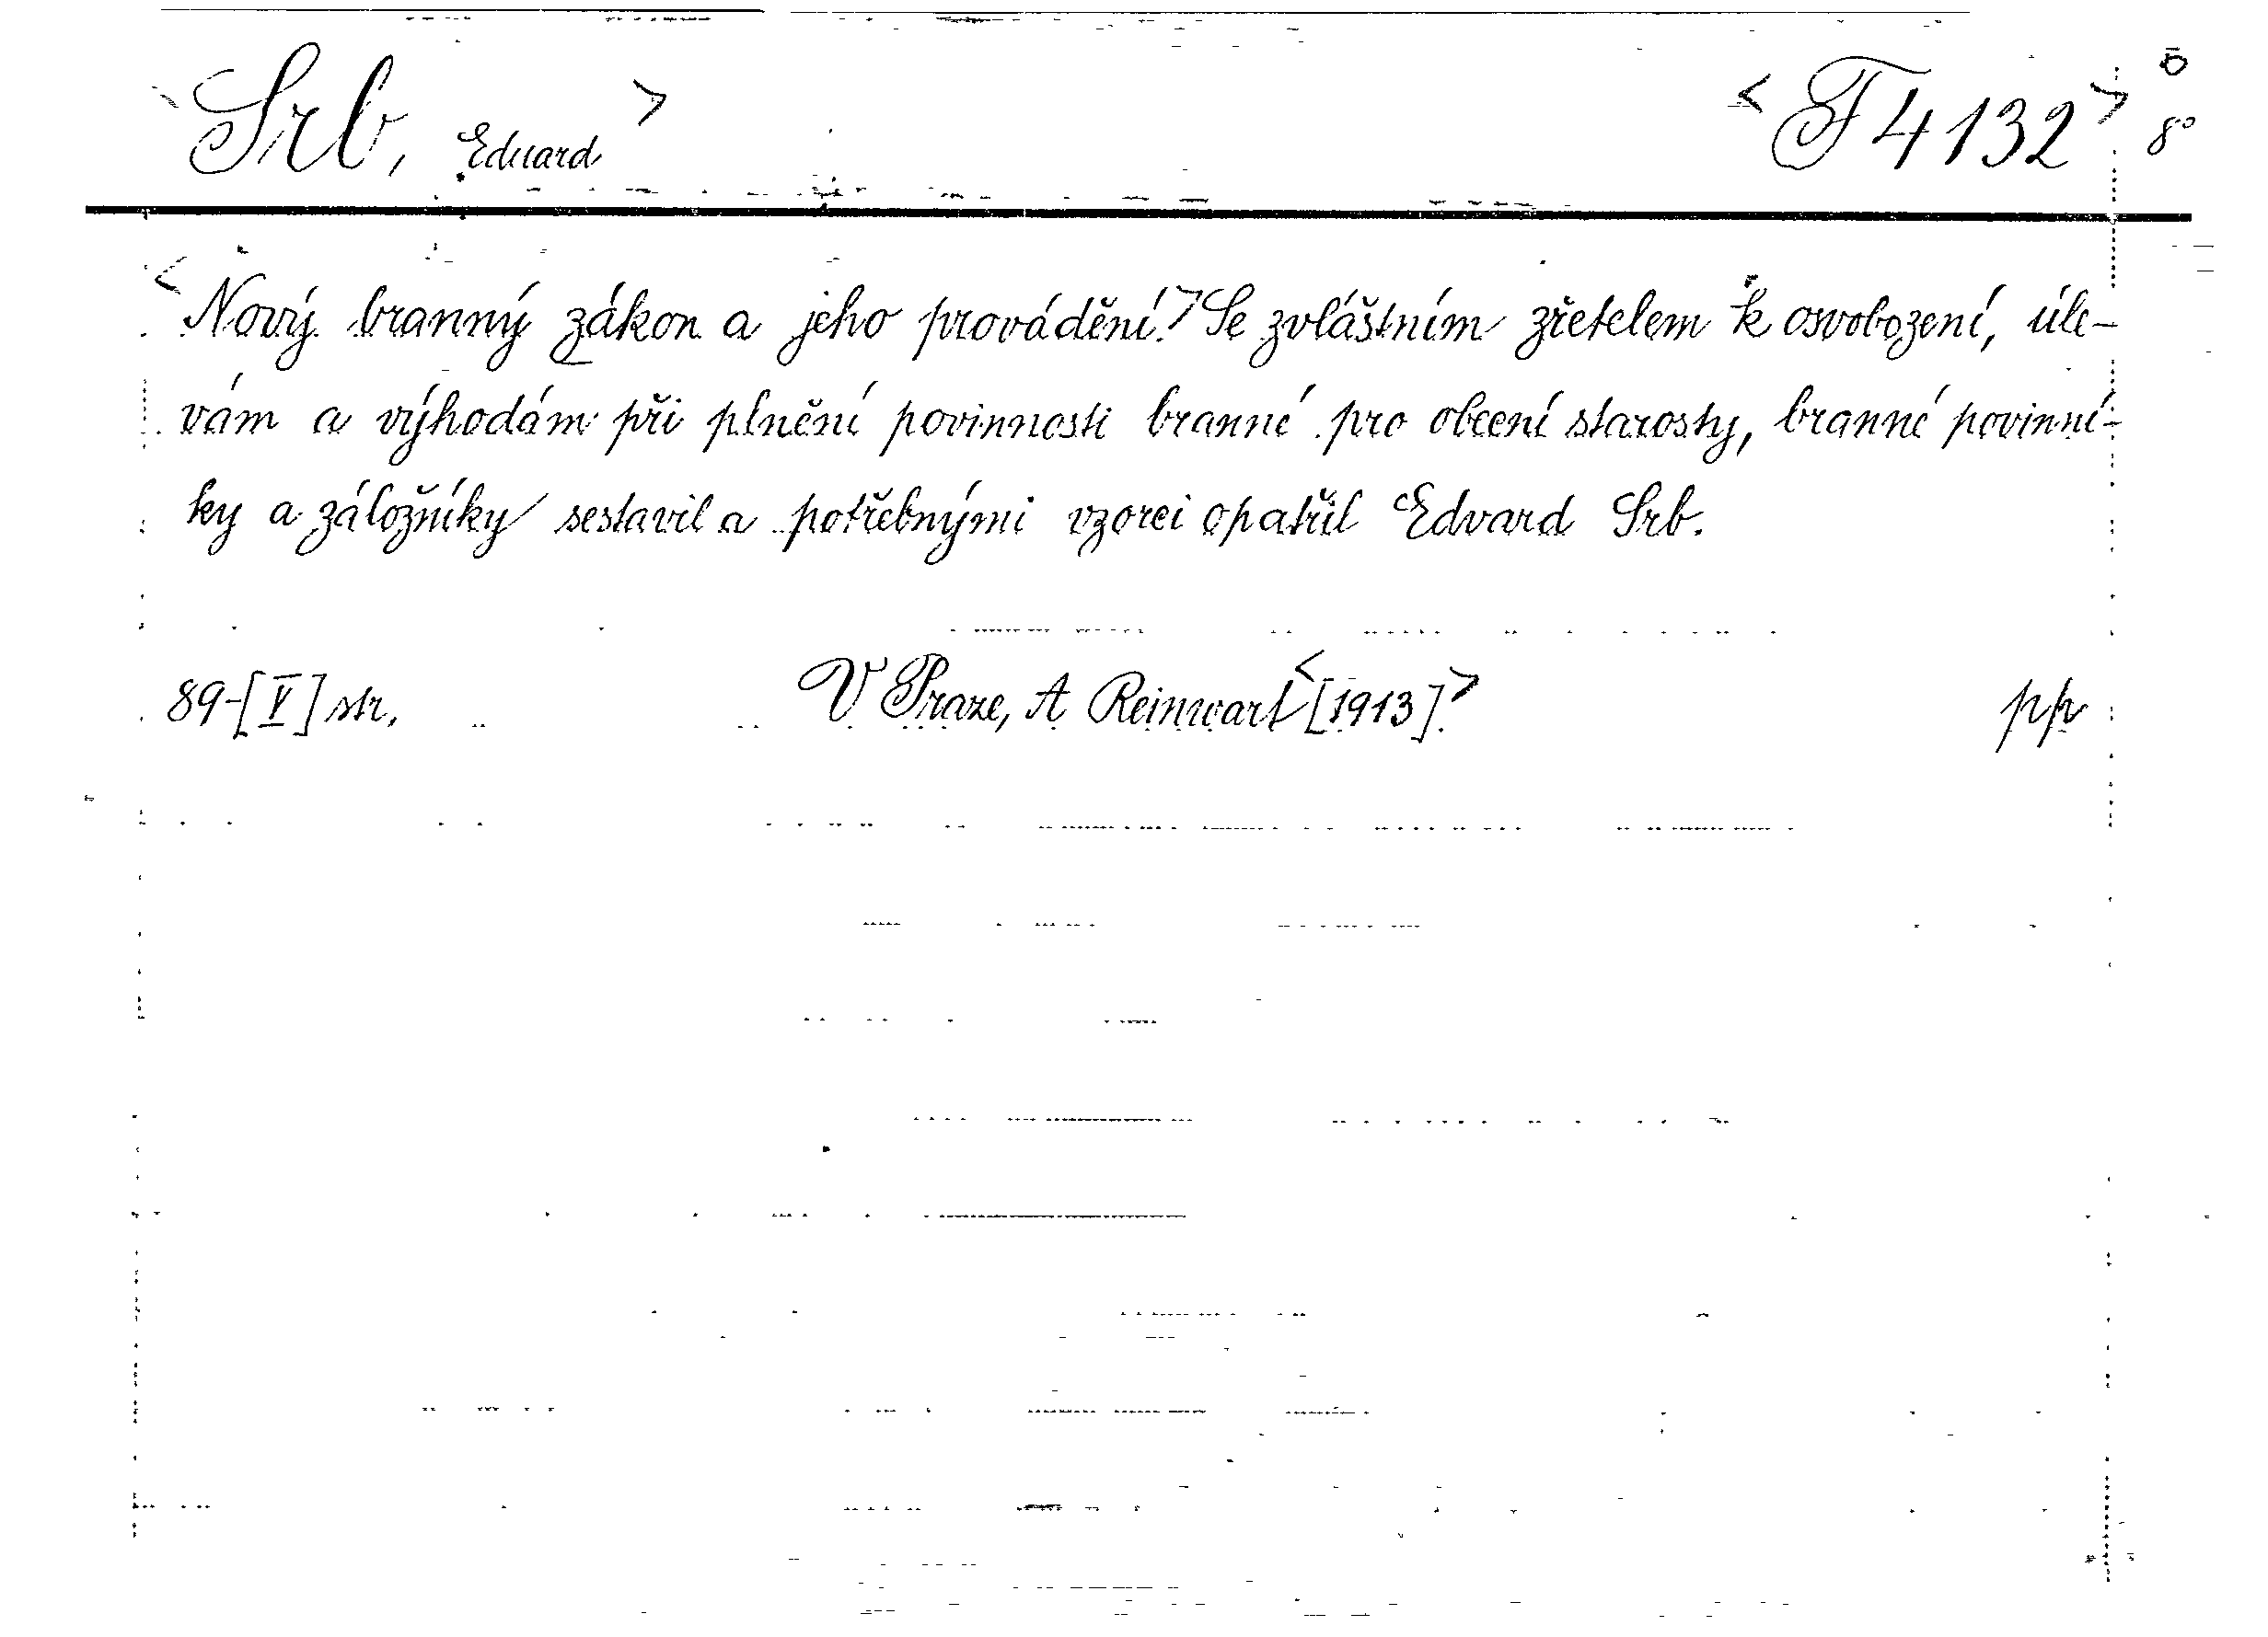 Srb, Eduard > < F 4132 > 8°
< Nový branný zákon a jeho provádění.> Se zvláštním zřetelem k osvobození, úle-
vám a výhodám při plnění povinnosti branné pro obecní starosty, branné povinní-
ky a záložníky sestavil a potřebnými vzorci opatřil Edvard Srb.
89-[V] str. V Praze, A Reinwart <[1913].> pp